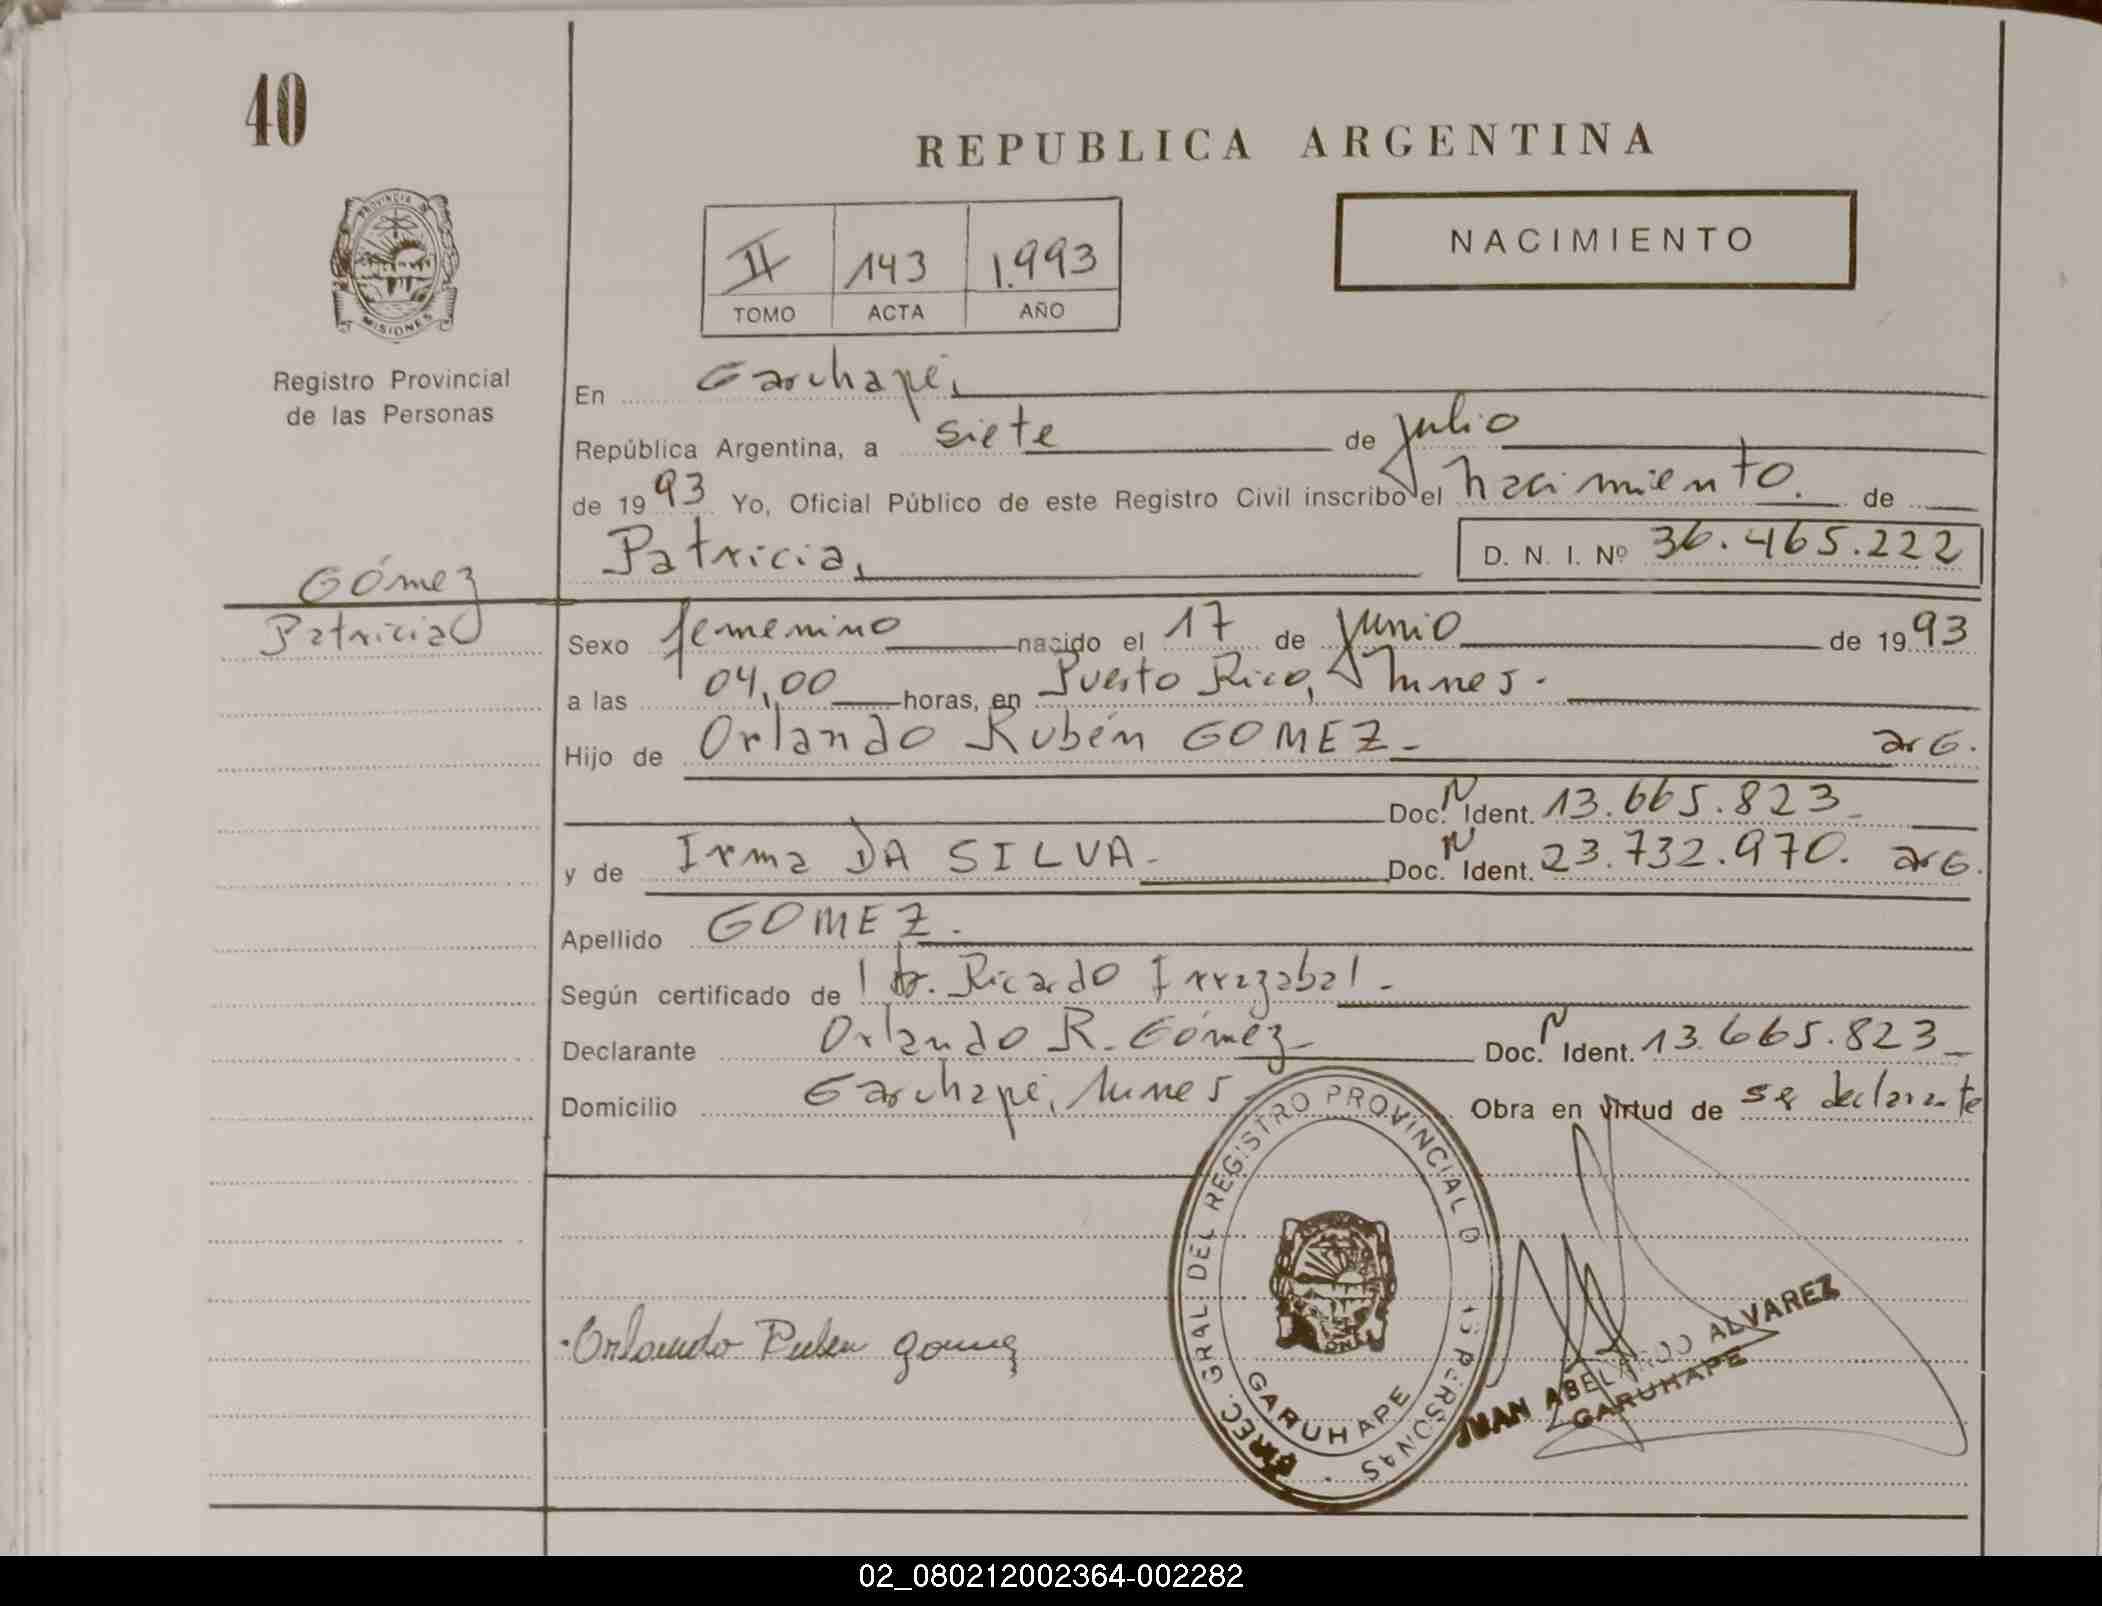 40
REPUBLICA ARGENTINA
NACIMIENTO
II 143 1.993
TOMO ACTA AÑO
PROVINCIA D
MISIONES
Registro Provincial
de las Personas
En Garuhapé,
República Argentina, a siete de julio
de 1993 Yo, Oficial Público de este Registro Civil inscribo el nacimiento. de
Patricia, D. N. I. Nº 36.465.222
Gómez
Patricia
Sexo femenino nacido el 17 de junio de 1993
a las 04,00 horas, en Puerto Rico, Mnes.
Hijo de Orlando Rubén GOMEZ- arG.
Doc. N Ident. 13.665.823-
y de Irma DA SILVA- Doc. N Ident. 23.732.970. arG.
Apellido GOMEZ.
Según certificado de Dr. Ricardo Irrazabal-
Declarante Orlando R. Gómez- Doc. N Ident. 13.665.823-
Domicilio Garuhapé, Mnes Obra en virtud de se declarante
DIREC. GRAL DEL REGISTRO PROVINCIAL D PERSONAS
GARUHAPE
Orlando Ruben gomez
JUAN ABELARDO ALVAREZ
GARUHAPE
02_080212002364-002282